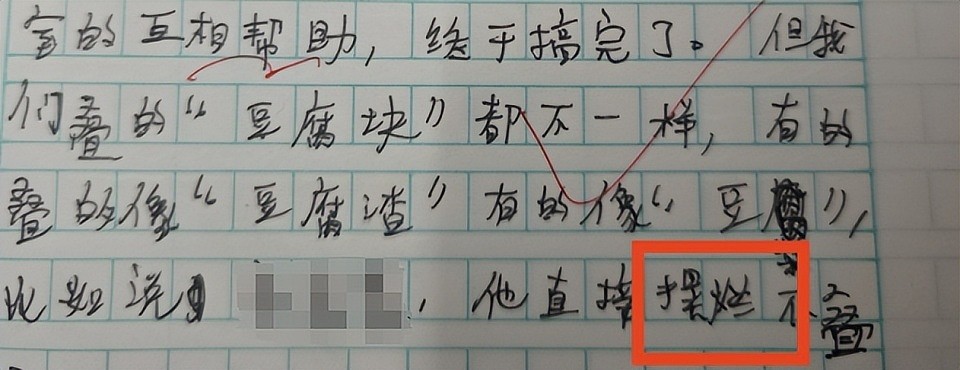 的互相帮助，终于搞完了。但我
们叠的“豆腐块”都不一样，有的
叠的像“豆腐渣”有的像“豆腐”，
比如说，他直接摆烂不叠